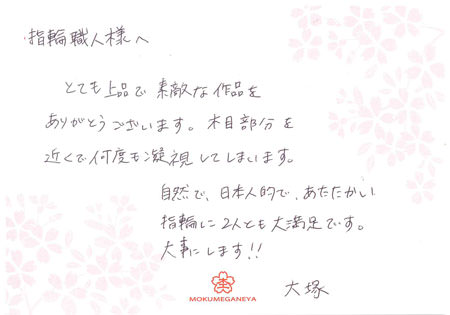 指輪職人様へ
とても上品で素敵な作品を
ありがとうございます。木目部分を
近くで何度も凝視してしまいます。
自然で、日本人的で、あたたかい
指輪に2人とも大満足です。
大事にします!!
MOKUMEGANEYA
大塚